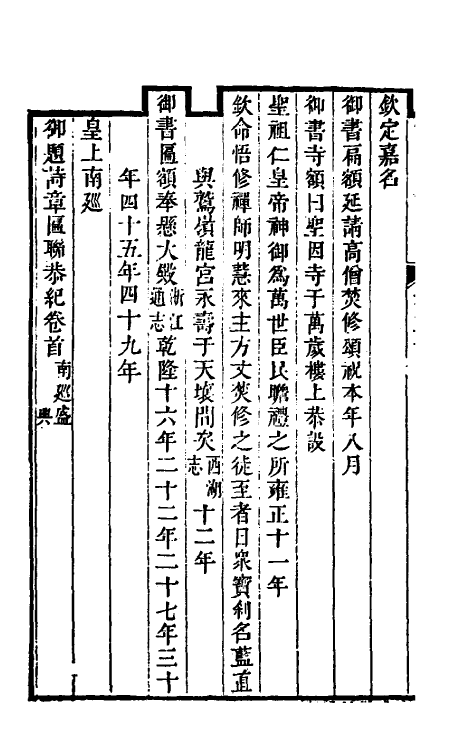 欽定嘉名
御書扁額延請高僧焚修頌祝本年八月
御書寺額曰聖因寺于萬歲樓上恭設
聖祖仁皇帝神御為萬世臣民瞻禮之所雍正十一年
欽命悟修禪師明慧來主方丈焚修之徒至者日衆寶刹名藍直
與鷲嶺龍宮永壽于天壤間矣西湖志十二年
御書匾額奉懸大殿浙江通志乾隆十六年二十二年二十七年三十
年四十五年四十九年
皇上南廵
御題詩章匾聯恭紀卷首南廵盛典